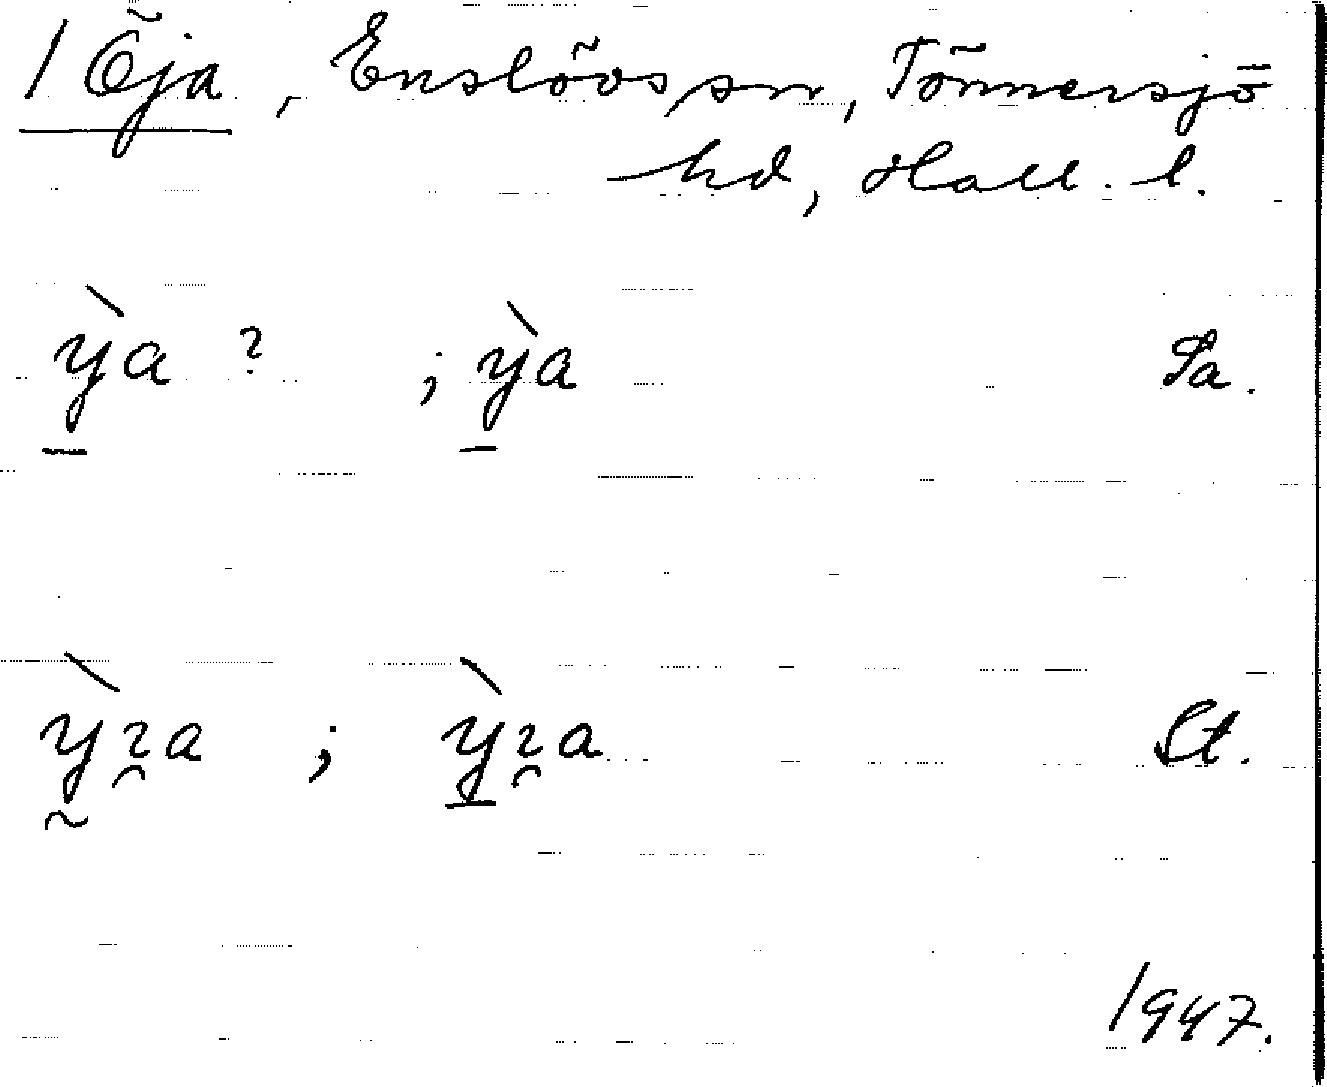 1 Öja, Enslövs sn, Tönnersjö
hd, Hall. l.
ỳ̠a ? ; ỳ̠a Sa.
ỳ̰ɿ̯a ; ỳ̠ɿ̯a St.
1947.